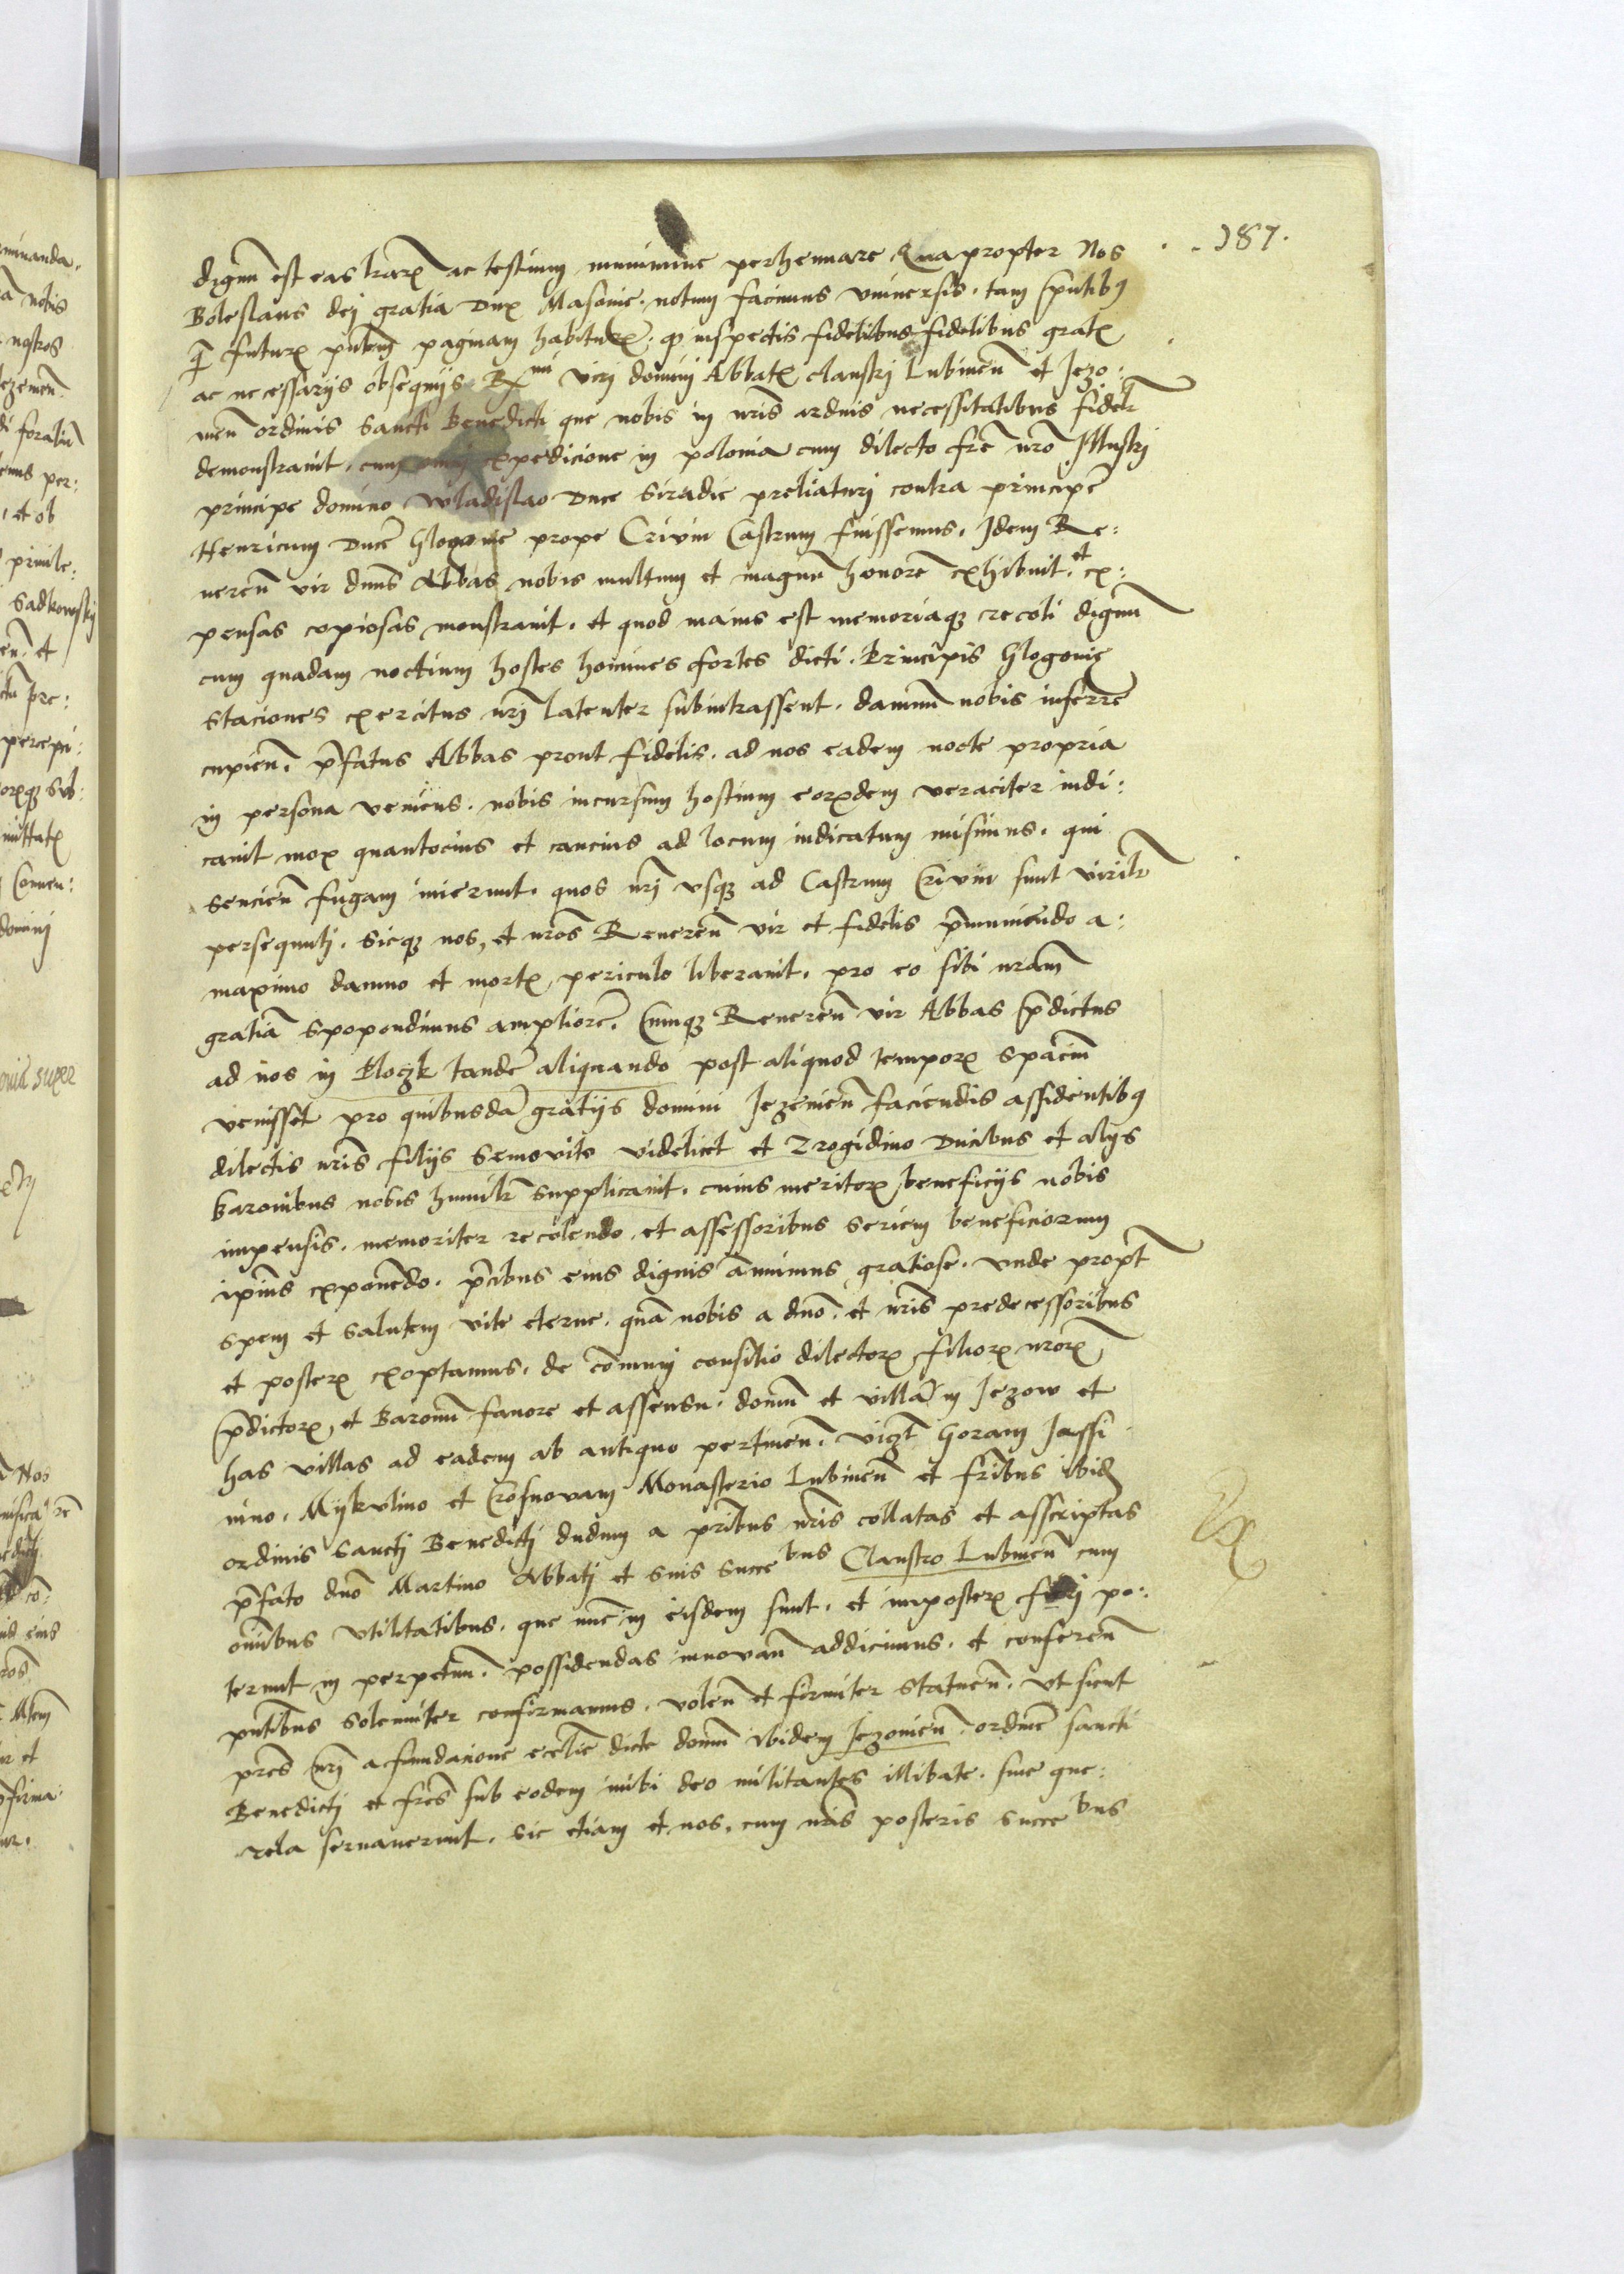 .187.
dignū est eas lrarꝝ ac testium munimine perhennare Quapropter Nos
Boleslaus dej gratia Dux Masouie. notum facimus vniuersis. tam p̄ntibꝰ
q̄ futurꝭ pntem̄ paginam habiturꝭ. ꝙ inspectis fidelibus fidelibus gratꝭ
ac necessarijs obsequijs Rx viri dominj Abbatꝭ claustrj Lubinen̄ et Jezo:
uien̄ ordinis Sancti Benedicti que nobis in nris̄ arduis necessitatibus fidelr̄
demonstrauit. cum expedicione in polonia cum dilecto frē nrō Illustrj
principe domino Wladislao Duce Siradie preliaturj contra principē
Henricum Ducē Glogouie prope Crivin Castrum fuissemus. Idem Re:
ueren̄ vir dnūs Abbas nobis multum et magnū honorē exhibuit. et ex:
pensas copiosas monstrauit. et quod maius est memoriaqꝫ recoli dignū
cum quadam noctium hostes homines fortes dicti. Principis Glogouie
Staciones exercitus nrj̄ latenter subintrassent. damnū nobis inferre
cupien̄. p̄fatus Abbas prout fidelis. ad nos eadem nocte propria
in persona veniens. nobis incursum hostium eorꝝdem veraciter indi:
cauit mox quantocius et caucius ad locum indicatum misimus. qui
sencien̄ fugam inierunt. quos nrj̄ vsqꝫ ad Castrum Crivin sunt virilr̄
persequutj. Sicqꝫ nos, et nrōs Reueren̄ vir et fidelis p̄muniendo a:
maximo damno et mortꝭ, periculo liberauit. pro eo sibi nrām
gratiā spopondimus ampliorē. Cumqꝫ Reueren̄ vir Abbas p̄dictus
ad nos in Ploczk tandē aliquando post aliquod temporꝭ spaciū
venisset pro quibusdā gratijs domini Jezeuien̄ faciendis assidentibꝰ
dilectis nris̄ filijs Semovito videlicet et Trogidino Ducibus et alijs
baronibus nobis humilr̄ supplicauit. cuius meritorꝝ beneficijs nobis
impensis. memoriter recolendo. et assessoribus seriem beneficiorum
ipius̄ exponēdo. p̄cibus eius dignis ānuimus gratiose. vnde propt̄
spem et salutem vite eterne. quā nobis a dnō. et nris̄ predecessoribus
et posterꝭ exoptamus. de cōmunj consilio dilectorꝝ filiorꝝ nrorꝝ
p̄dictorꝝ, et Baronū fauore et assensu. domū et villā in Jezow et
has villas ad eadem ab antiquo pertinen̄. vizt Goram Jassi
nino. Mijkulino et Crosnovam Monasterio Lubinen̄ et fribus̄ ibid
ordinis Sanctj Benedictj dudum a pribus̄ nris̄ collatas et asscriptas
p̄fato dnō Martino Abbatj et suis succebus Claustro Lubinen̄ cum
omībus vtilitatibus. que nūc in eisdem sunt. et imposterꝝ fierj po:
terunt in perpetuū. possidendas innouan̄ addicimus. et conferen̄
pntibus̄ solemniter confirmamus. volen̄ et firmiter statuen̄. vt sicut
prēs nrj̄ a fundacione ecclīe dicte domū ibidem Jezouien̄. ordinē sancti
Benedictj et frēs sub eodem inibi deo militantes illibate. sine que:
rela seruauerunt. sic etiam et nos. cum nris̄ posteris succebus